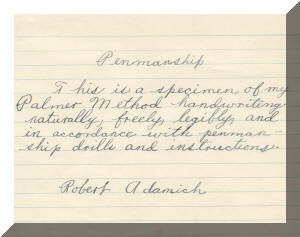 Penmanship
This is a specimen of my
Palmer Method handwriting
naturally, freely, legibly, and
in accordance with penman-
ship drills and instructions.
Robert Adamich